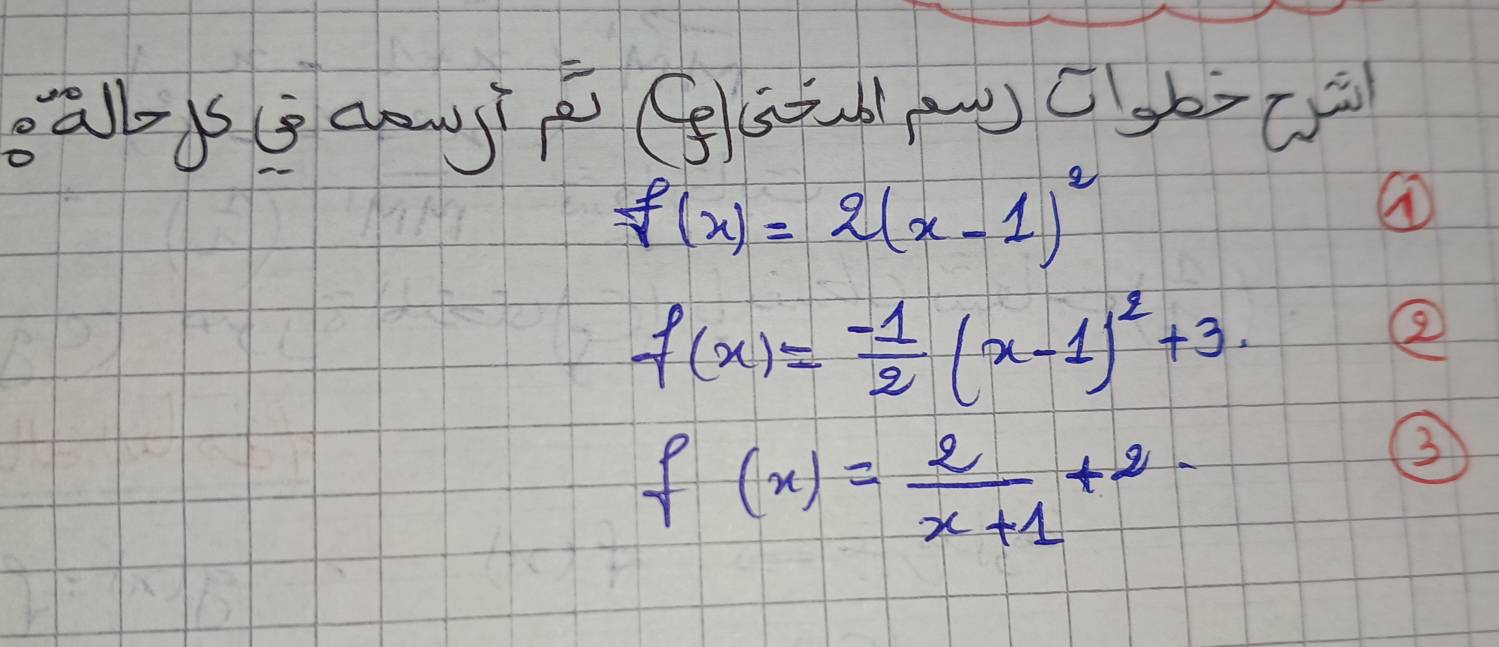 اشرح خطوات رسم المنحنى (Cf) ثم أرسمه في كل حالة:
① f(x) = 2(x - 1)²
② f(x) = -1/2 (x - 1)² + 3.
③ f(x) = 2/(x + 1) + 2.